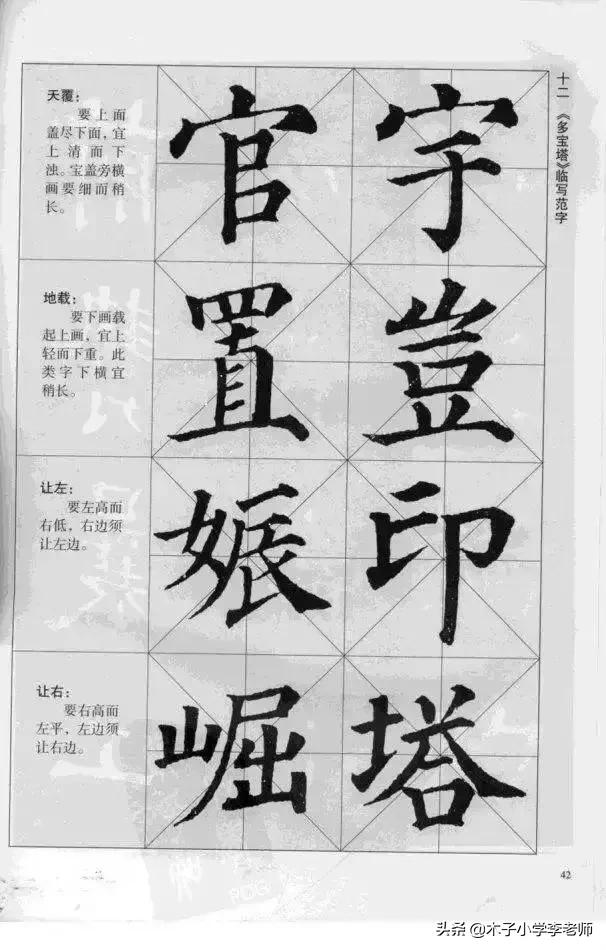 十二 《多宝塔》临写范字
天覆：
要上面
盖尽下面，宜
上清而下
浊。宝盖旁横
画要细而稍
长。
官 宇
地载：
要下画载
起上画，宜上
轻而下重。此
类字下横宜
稍长。
置 豈
让左：
要左高而
右低，右边须
让左边。
娠 印
让右：
要右高而
左平，左边须
让右边。
崛 塔
42
头条 @木子小学李老师